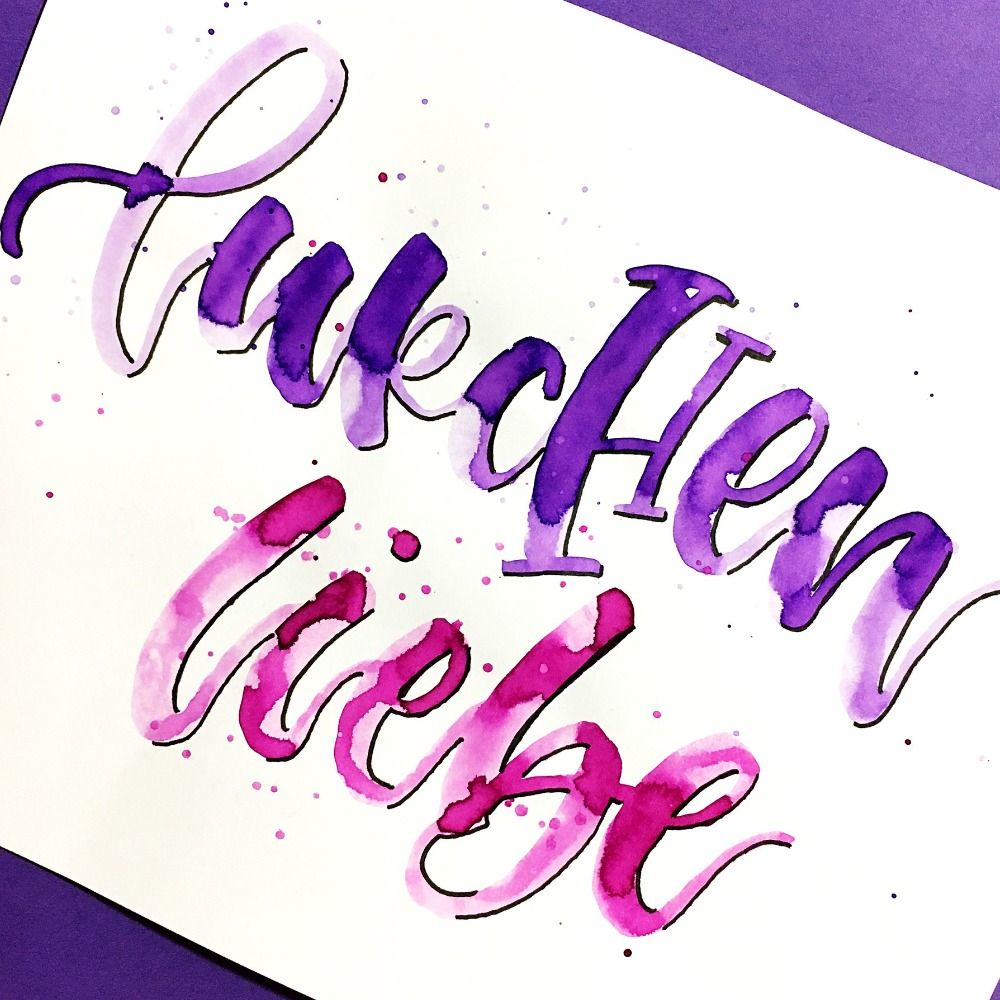 LukcHen
liebe